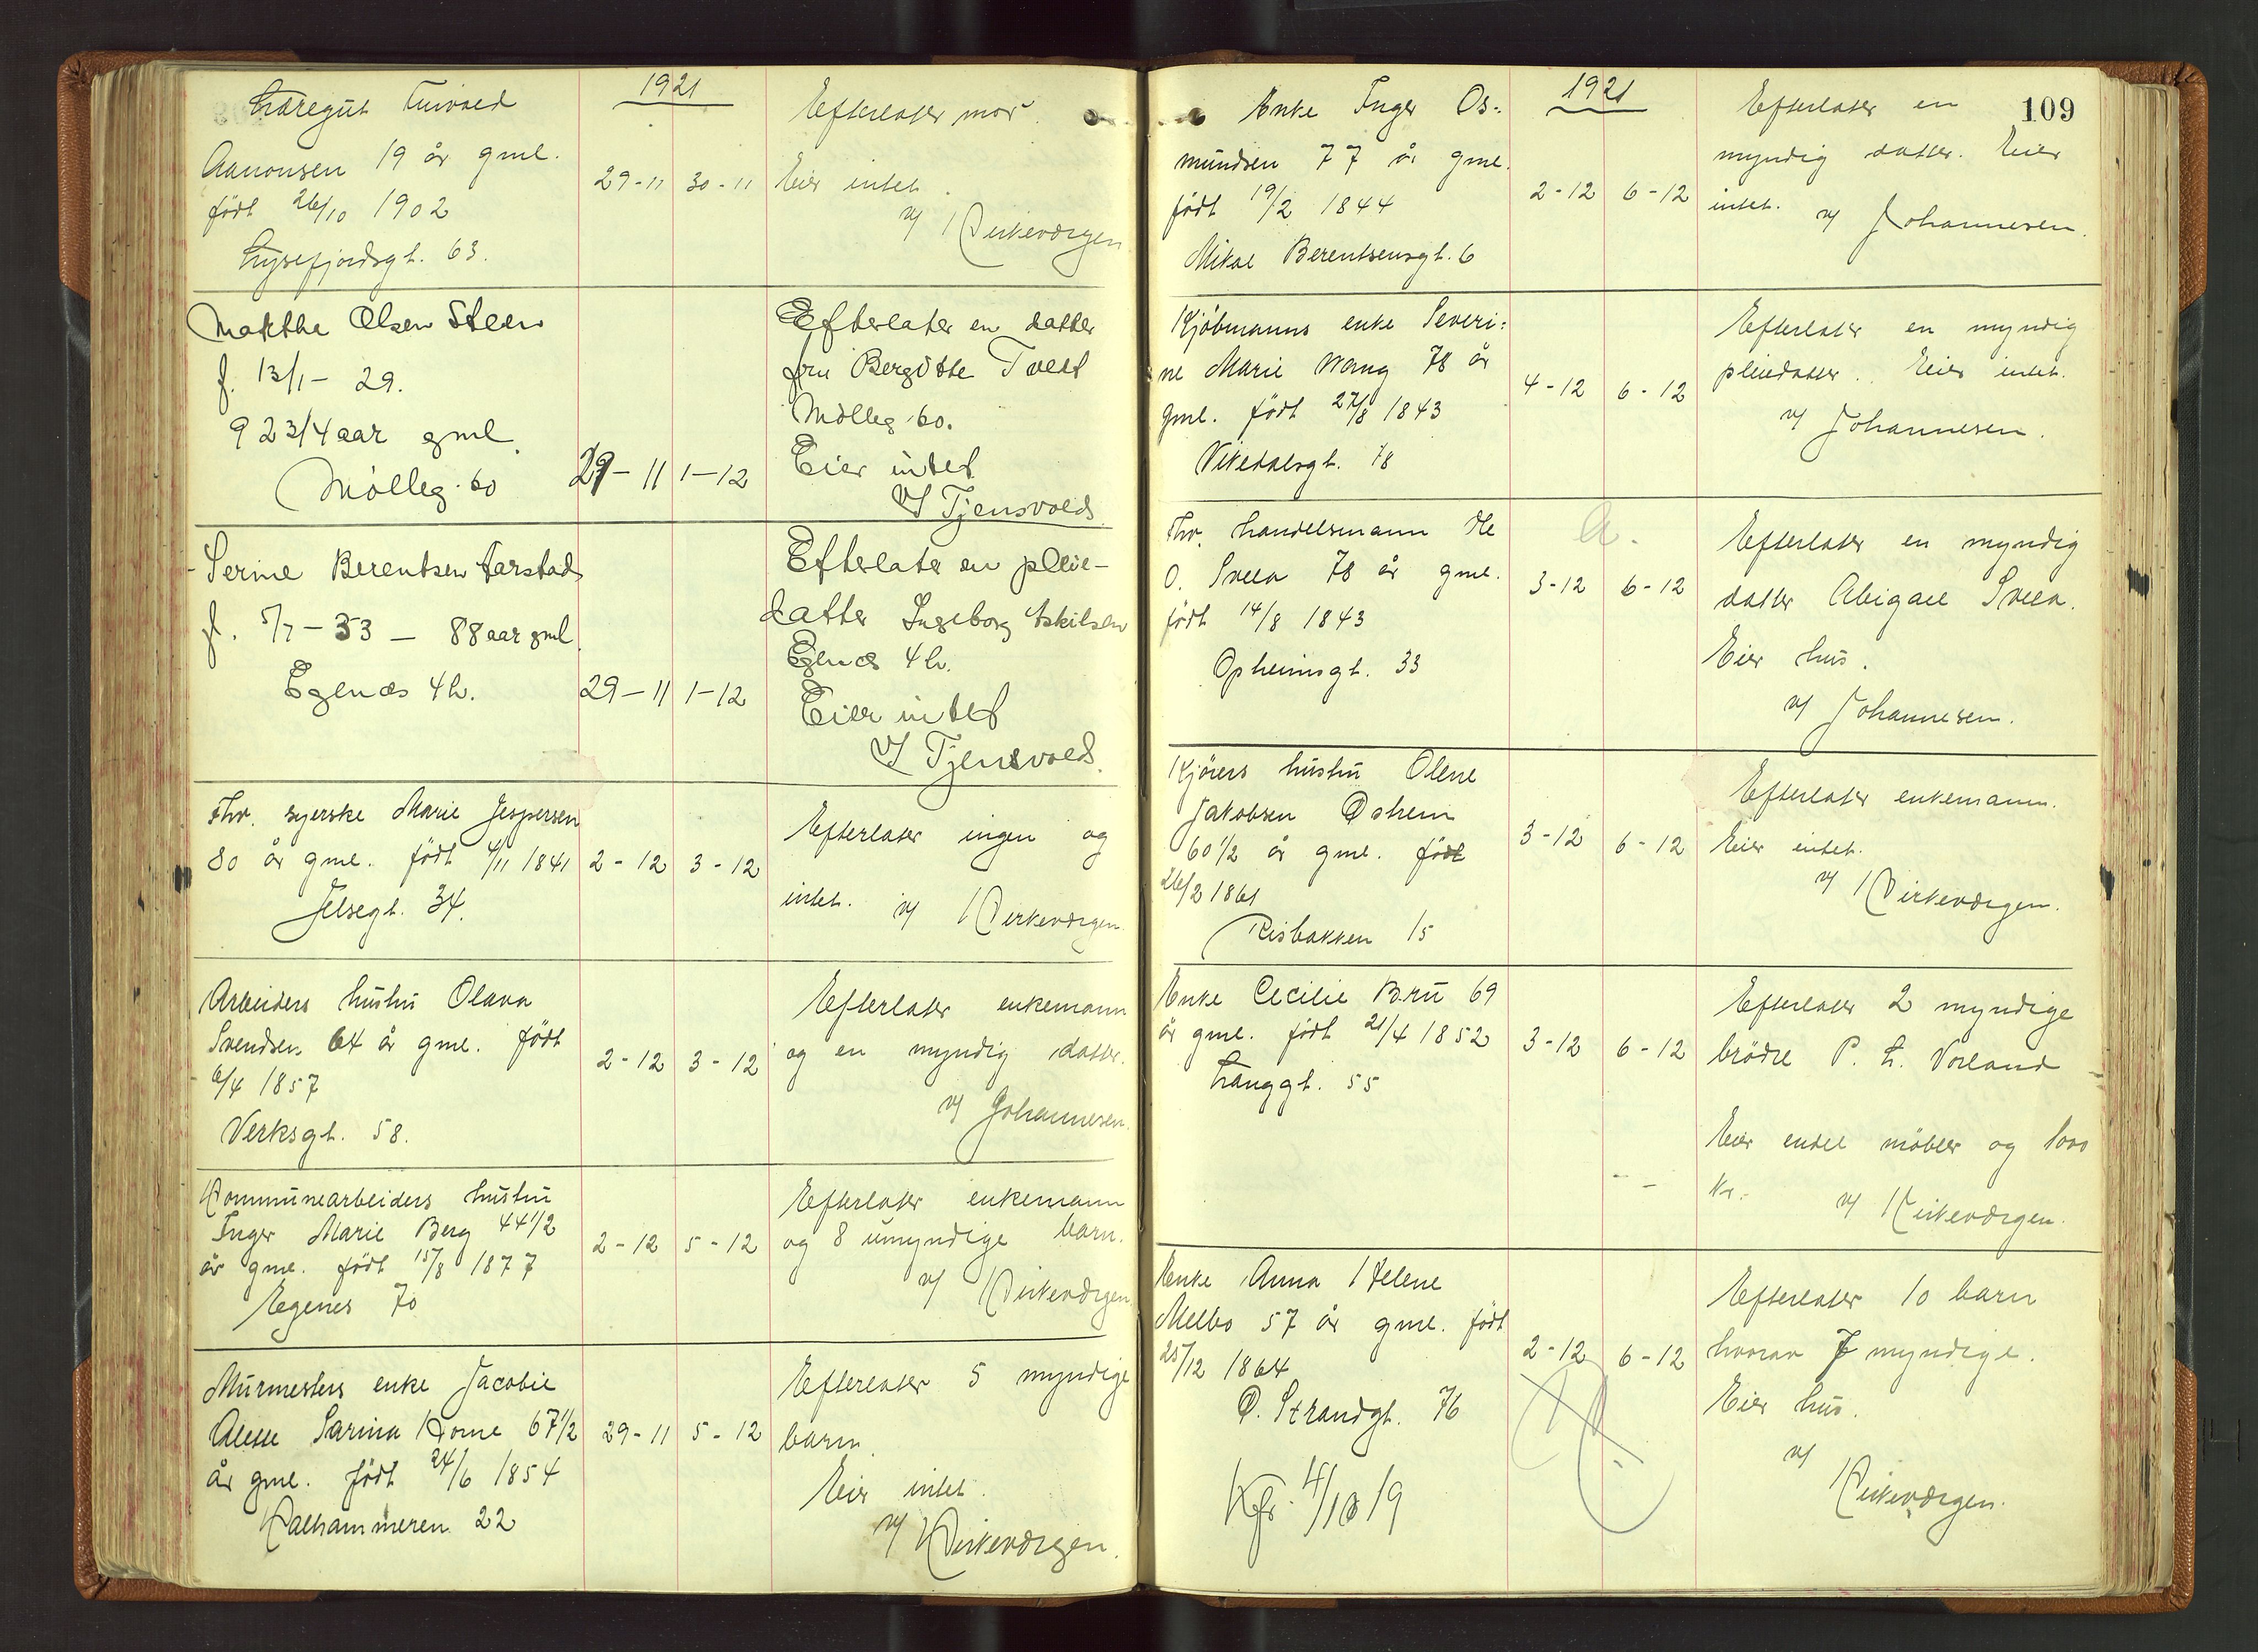 1921
Læregut Turvald
Aanonsen 19 år gml.
født 26/10 1902
Lysefjordsgt. 63.
29-11 30-11
Efterlater mor.
Eier intet.
v/ Kirkeværgen
Marthe Olsen Steen
f. 13/1- 29.
92 3/4 aar gml.
Mølleg. 60
29-11 1-12
Efterlater en datter
fru Bergitte Tveit
Mølleg. 60.
Eier intet
v/ Tjensvold
Serine Berentsen Aarstad
f. 5/7-33 - 88 aar gml.
Egenæs 4 b.
29-11 1-12
Efterlater en pleie-
datter Ingeborg Askilsen
Egenæs 4 b.
Eier intet
v/ Tjensvold.
Fhv. syerske Marie Jespersen
80 år gml. født 4/11 1841
Jelsegt. 34.
2-12 3-12
Efterlater ingen og
intet. v/ Kirkeværgen
Arbeiders hustru Olava
Svendsen 64 år gml. født
6/4 1857
Verksgt. 58.
2-12 3-12
Efterlater enkemann
og en myndig datter.
v/ Johannesen.
Kommunearbeiders hustru
Inger Marie Berg 44 1/2
år gml. født 15/8 1877
Egenes 70
2-12 5-12
Efterlater enkemann
og 8 umyndige barn.
v/ Kirkeværgen
Murmesters enke Jacobie
Sarina 67 1/2
år gml. født 24/6 1854
Kalhammeren 22
29-11 5-12
Efterlater 5 myndige
barn.
Eier intet.
v/ Kirkeværgen.
109
1921
Enke Inger Os-
mundsen 77 år gml.
født 19/2 1844
Mikal Berentsensgt. 6
2-12 6-12
Efterlater en
myndig datter. Eier
intet. v/ Johannesen.
Kjøbmanns enke Severi-
ne Marie Wang 78 år
gml. født 27/8 1843
Vikedalsgt. 78
4-12 6-12
Efterlater en myndig
pleiedatter. Eier intet.
v/ Johannesen.
Fhv. handelsmann Ole
O. Svela 78 år gml.
født 14/8 1843
Opheimsgt. 33
a.
3-12 6-12
Efterlater en myndig
datter Abigael Svela.
Eier hus.
v/ Johannesen.
Kjørers hustru Olene
Jakobsen Østrem
60 1/2 år gml. født
26/2 1861
Risbakken 15
3-12 6-12
Efterlater enkemann.
Eier intet.
v/ Kirkeværgen.
Enke Cecilie Bru 69
år gml. født 21/4 1852
Langgt. 55
3-12 6-12
Efterlater 2 myndige
brødre P. L. Vorland
Eier endel møbler og 1000
kr. v/ Kirkeværgen.
Enke Anna Helene
Melbo 57 år gml. født
25/12 1864
Ø. Strandgt. 76
Kfr. 4/10 19
2-12 6-12
Efterlater 10 barn
hvorav 7 myndige.
Eier hus.
v/
Kirkeværgen.